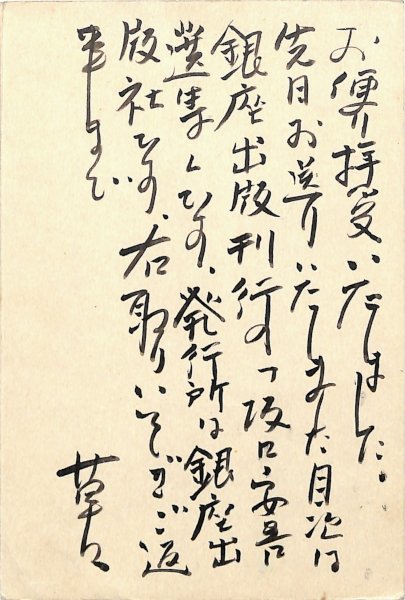 お便り拝受いたしました。
先日お送りいたしました目次は
銀座出版刊行の「坂口安吾
選集」です、発行所は銀座出
版社です、右取りいそぎご返
事まで
草々